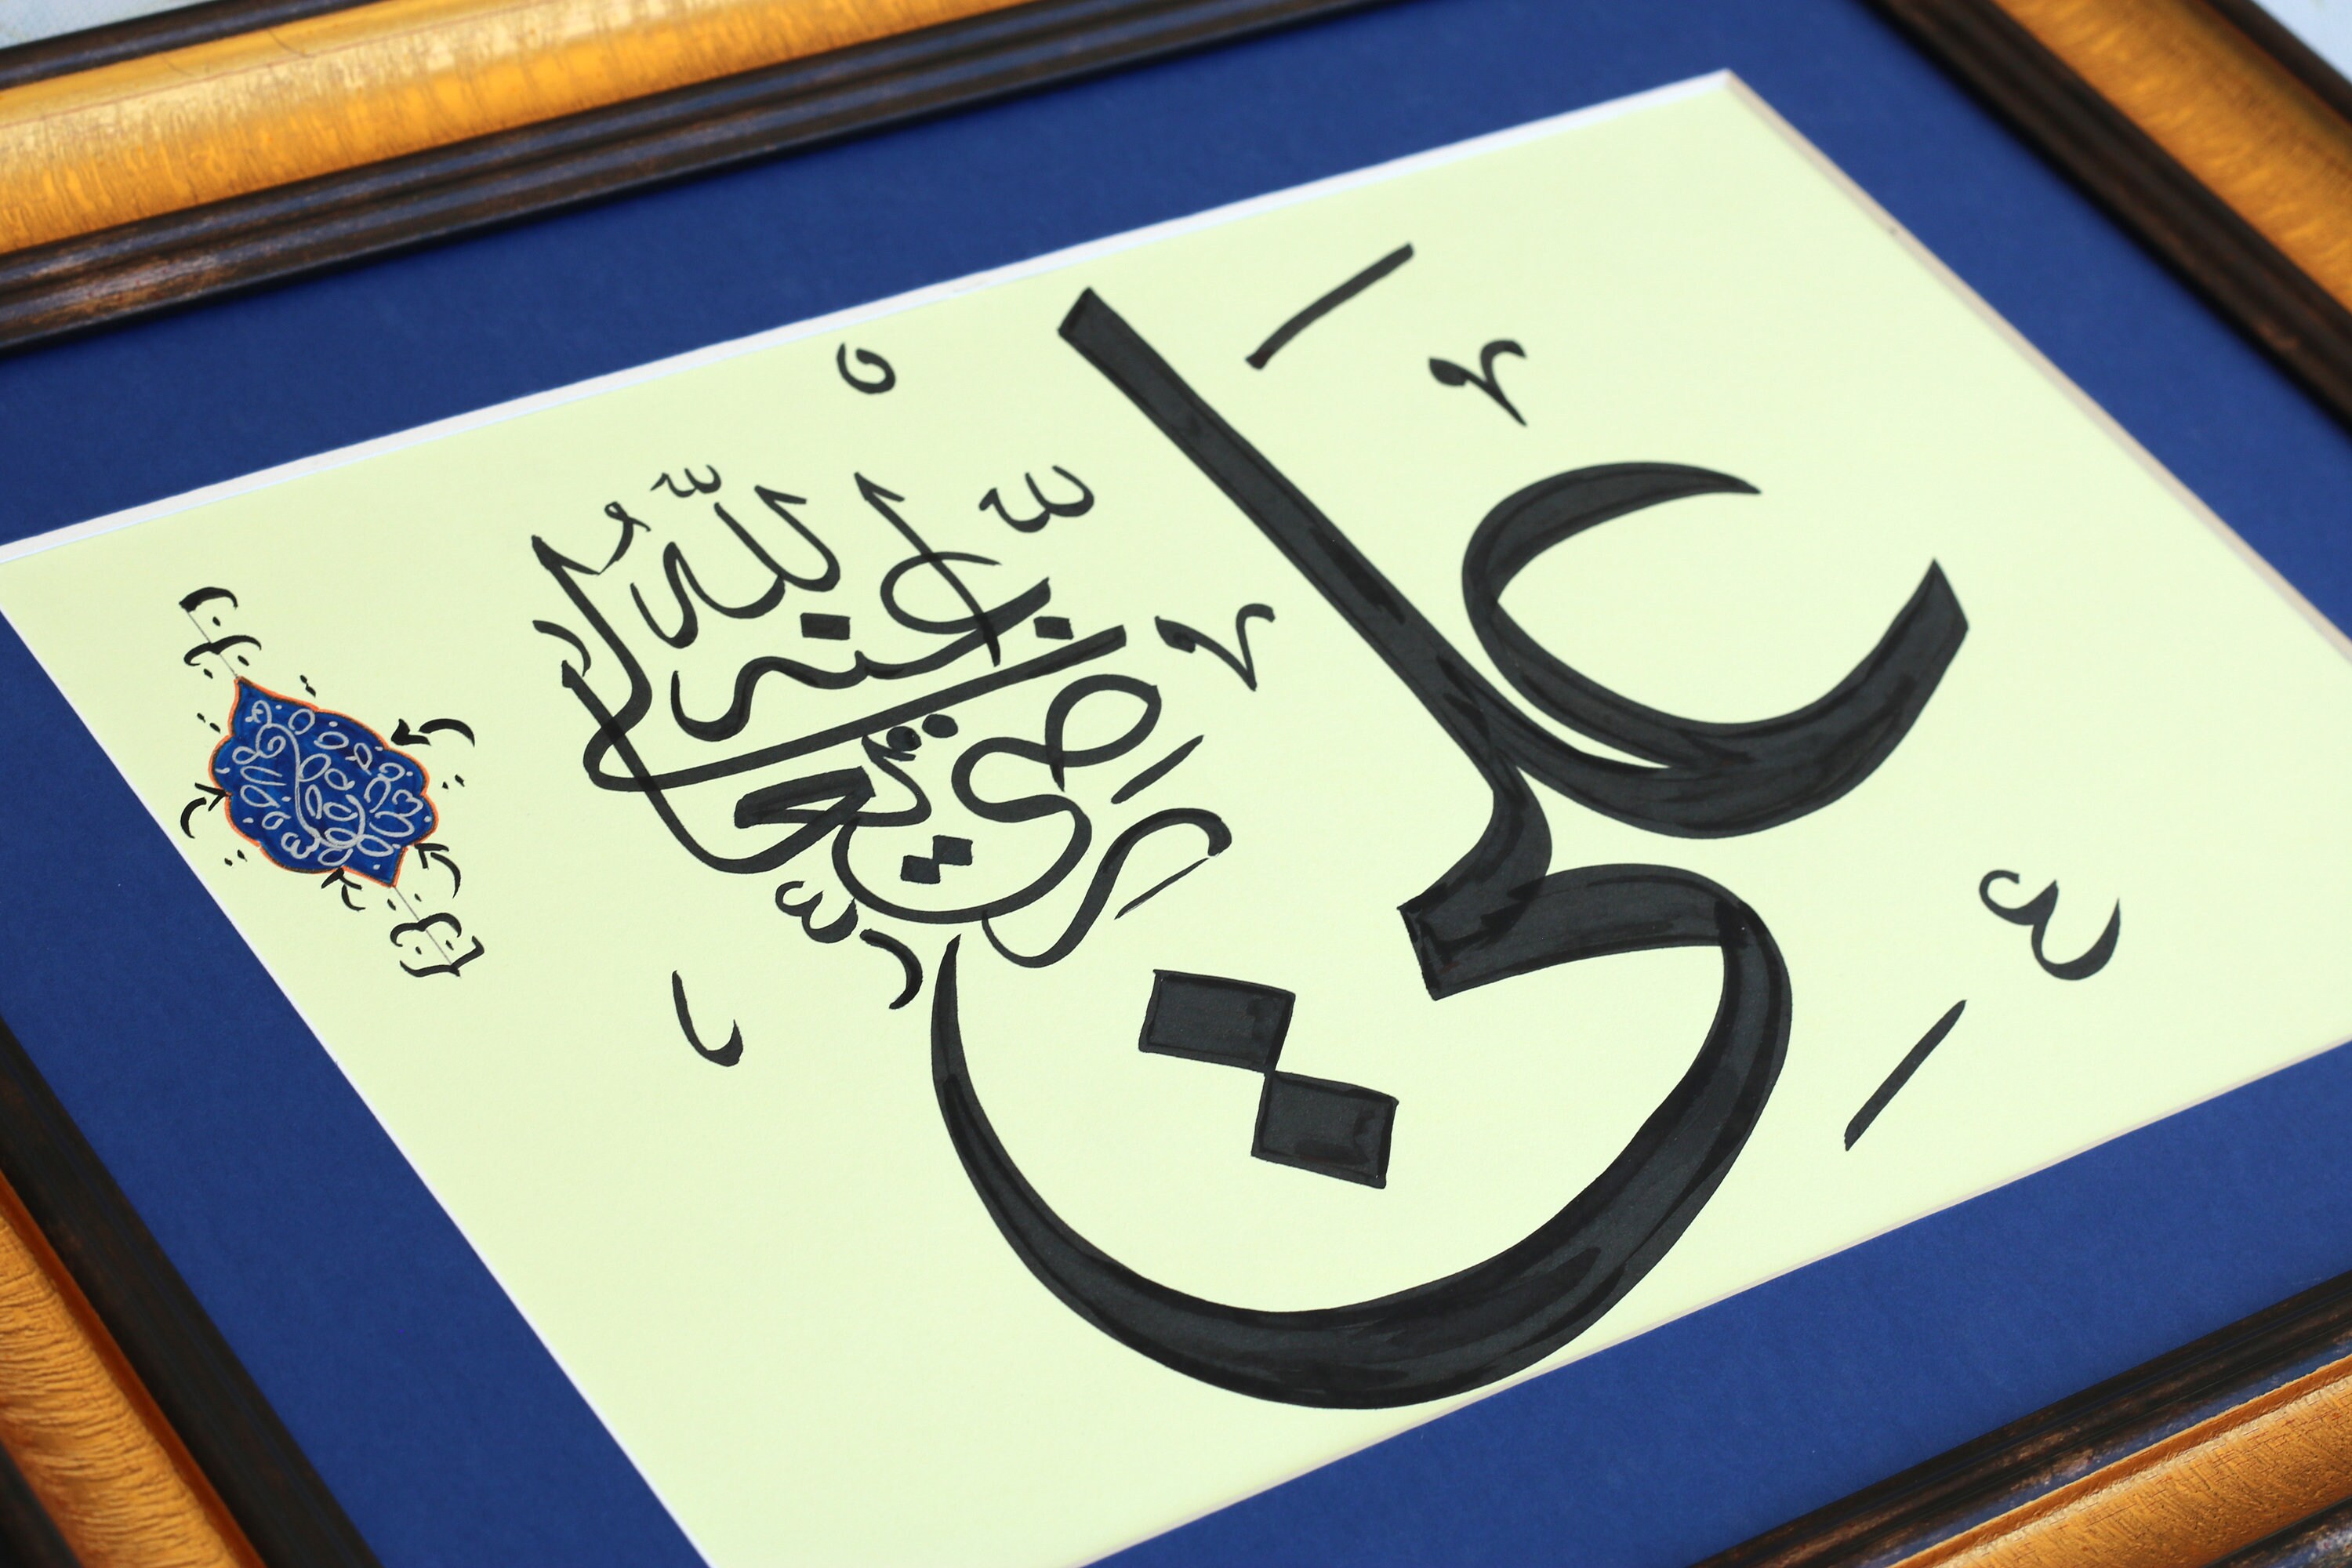 علي
رضي الله تعالى عنه